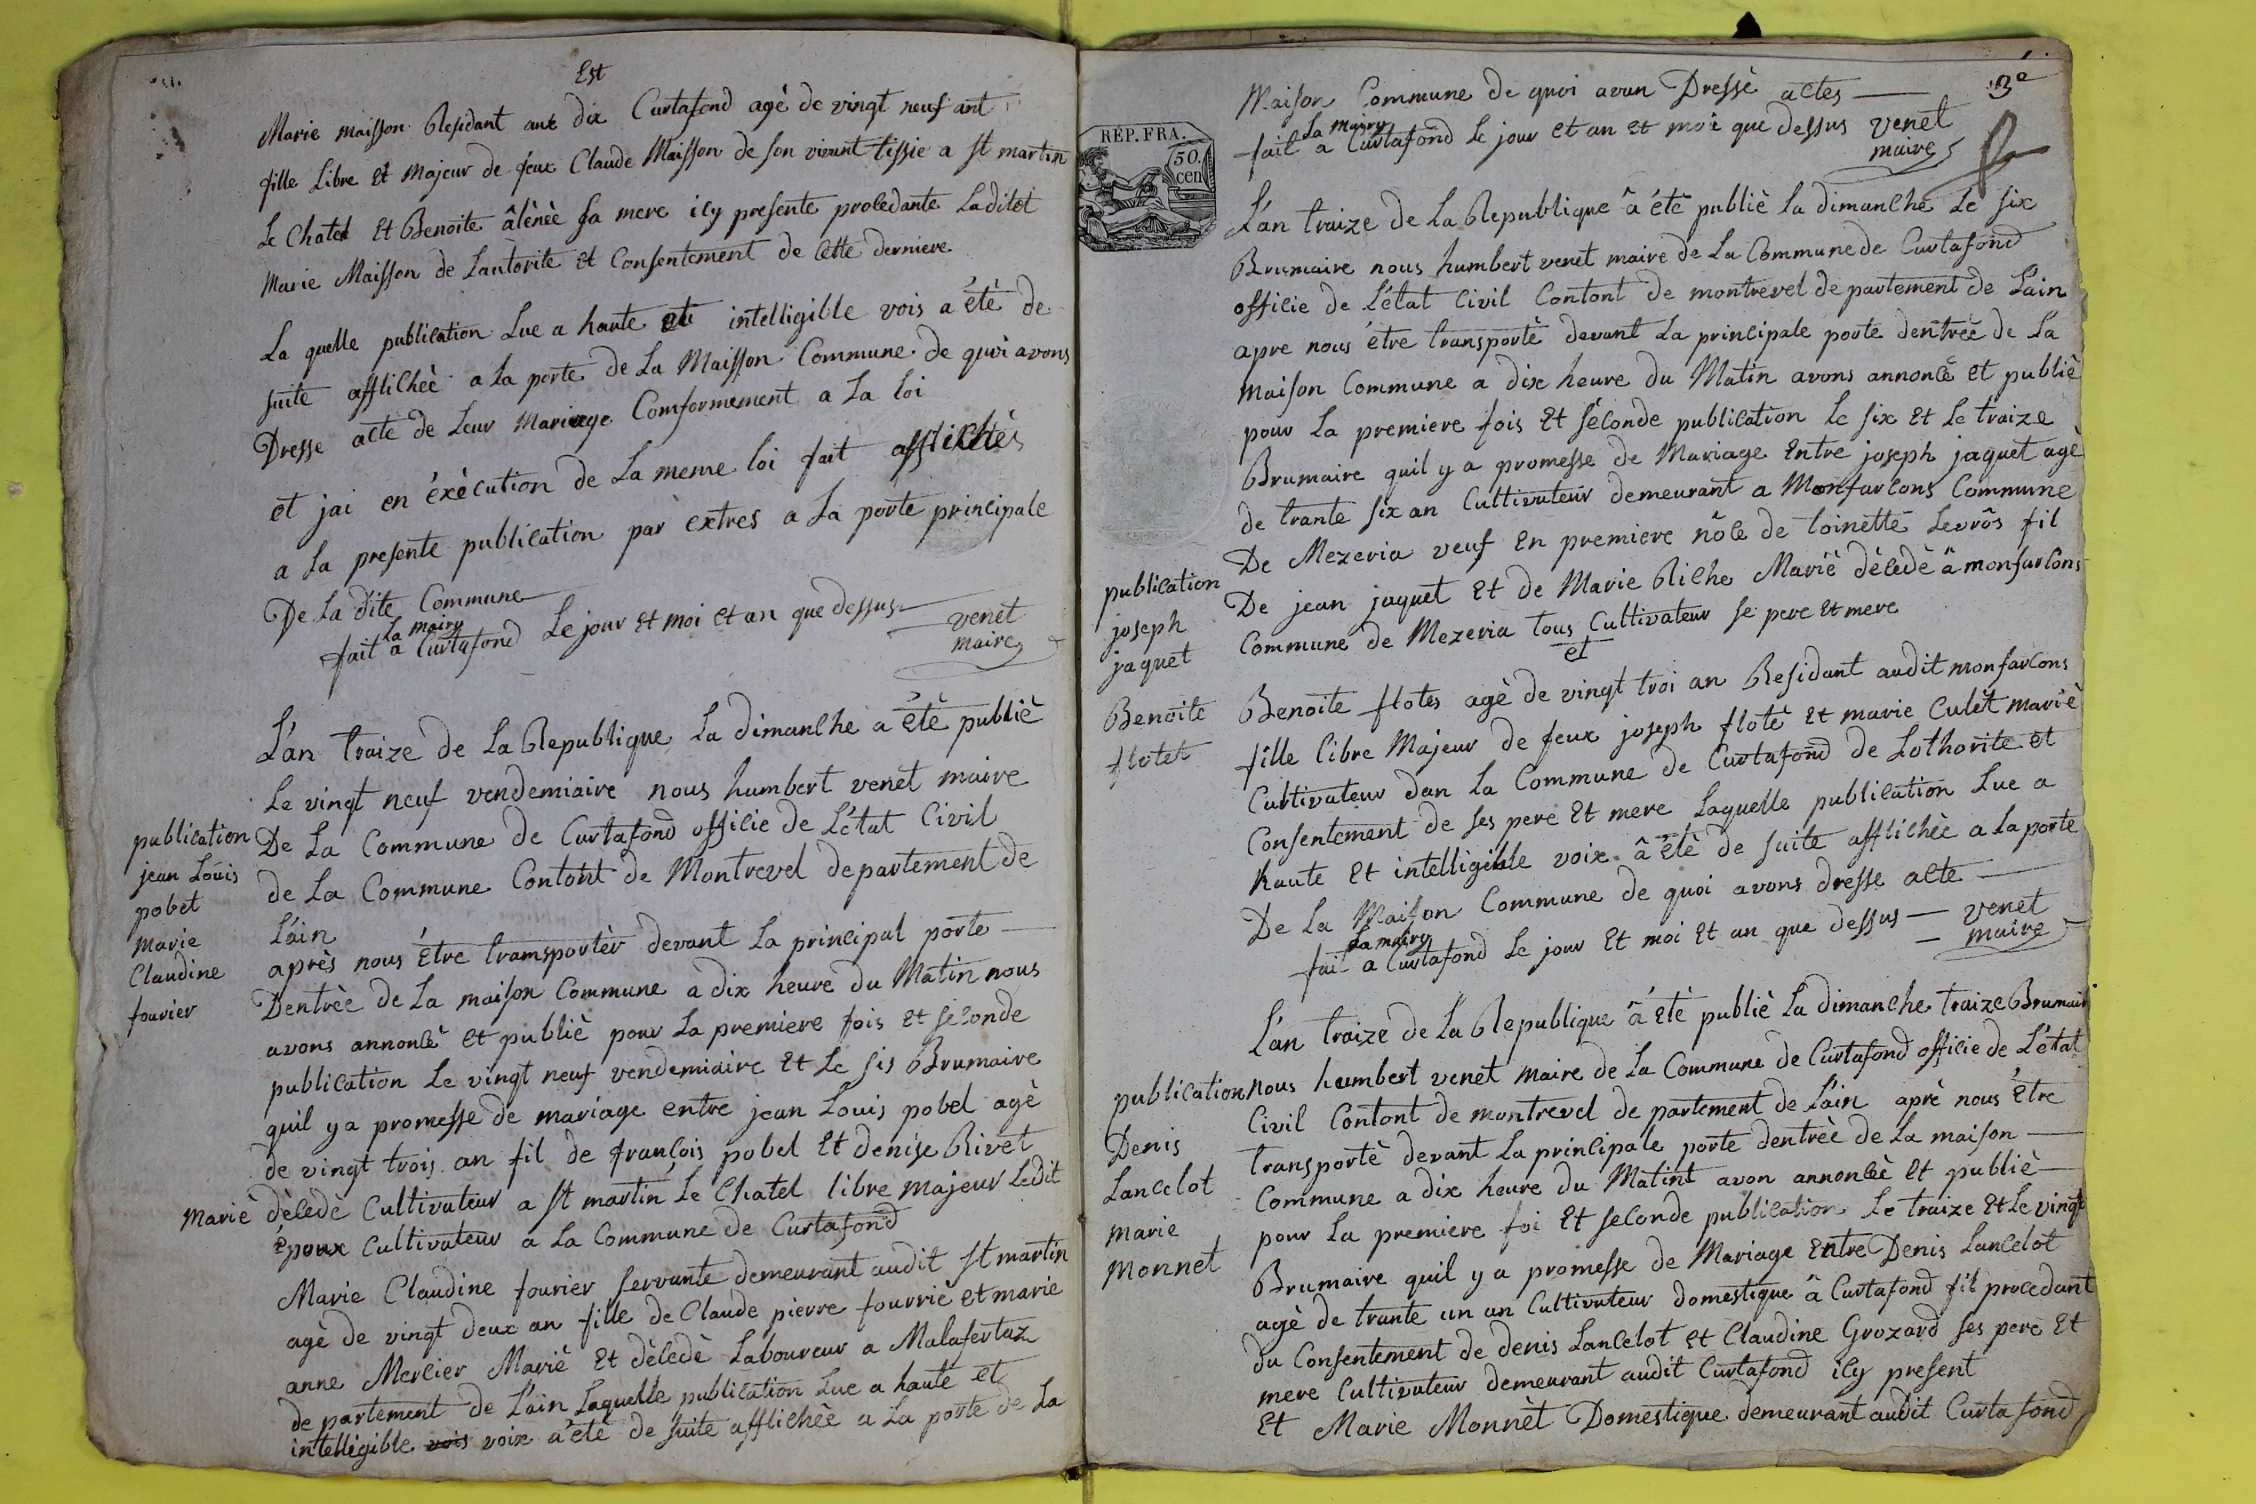 Est
Marie maisson Residant aux dix Curtafond agé de vingt neuf ant
fille Libre Et Majeur de feux Claude Maisson de son vivant tissie a st martin
Le Chatel Et Benoite âlénéé sa mere icy presente procedante Laditet
Marie Maisson de Lautorite Et Consentement de Cette derniere
La quelle publication Lue a haute et intelligible vois a été de
suite affichéé a la porte de La Maisson Commune de quoi avons
Dresse acte de Leur Mariage Comformement a La loi
et jai en éxécution de La meme loi fait affichés
a La presente publication par extres a La porte principale
De La dite Commune
La mairy
fait a Curtafond Le jour Et moi et an que dessus venet
maire
L'an traize de La Republique La dimanche a été publié
Le vingt neuf vendemiaire nous humbert venet maire
De La Commune de Curtafond officie de L'état Civil
de La Commune Contont de Montrevel departement de
L'ain
publication
jean Louis
pobet
Marie
Claudine
fourier
après nous Étre transportér devant La principal porte
Dentrée de La maison Commune a dix heure du Matin nous
avons annoncé et publié pour La premiere fois Et seconde
publication Le vingt neuf vendemiaire Et Le sis Brumaire
quil y a promesse de mariage entre jean Louis pobel agé
de vingt trois an fil de françois pobel Et denise Rivet
Marié décédé Cultivateur a St martin Le Chatel libre majeur Ledit
époux Cultivateur a La Commune de Curtafond
Marie Claudine fourier servante demeurant audit St martin
agé de vingt deux an fille de Claude pierre fourrié et marie
anne Mercier Marié Et décédé Laboureur a Malafertaz
de partement de L'ain Laquelle publication Lue a haute et
intelligible vois voix a été de suite affichéé a La porte de La
3e
Maison Commune de quoi avun Dressé actes
La mairy
fait a Curtafond Le jour Et an Et moi que dessus venet
maire
RÉP. FRA.
50.
cen
L'an traize de La Republique â été publié La dimanche Le six
Brumaire nous humbert venet maire de La Commune de Curtafond
officie de L'état Civil Contont de montrevel de partement de L'ain
apre nous étre transporté devant La principale porte dentrée de La
maison Commune a dix heure du Matin avons annoncé et publié
pour La premiere fois Et séconde publication Le six Et Le traize
Brumaire quil y a promesse de Mariage Entre joseph jaquet agé
de trante six an Cultivateur demeurant a Monfarcons Commune
De Mezeria veuf En premiere nôce de toinette Levrôs fil
De jean jaquet Et de Marie Riche Marié décédé â monfarcons
Commune de Mezeria tous Cultivateur se pere Et mere
publication
joseph
jaquet
Benoite
flotet
et
Benoite flotes agé de vingt troi an Residant audit monfarcons
fille libre Majeur de feux joseph floté Et marie Culét marié
Cultivateur dan La Commune de Curtafond de Lothorite et
Consentement de ses pere Et mere Laquelle publication Lue a
haute Et intelligible voix â été de suite affichéé a La porte
De La Maison Commune de quoi avons dresse acte
La mairy
fait a Curtafond Le jour Et moi Et an que dessus venet
maire
L'an traize de La Republique â été publié La dimanche traize Brumaire
nous humbert venet maire de La Commune de Curtafond officie de L'état
Civil Contont de montrevel de partement de L'ain apré nous Étre
transporté devant La principale porte dentrée de La maison
Commune a dix heure du Matint avon annoncéé Et publié
pour La premiere foi Et seconde publication Le traize Et Le vingt
Brumaire quil y a promesse de Mariage Entre Denis Lancelot
agé de trante un an Cultivateur domestique â Curtafond fil procedant
du Consentement de denis Lancelot Et Claudine Grozard ses pere Et
mere Cultivateur demeurant audit Curtafond icy present
Et Marie Monnét Domestique demeurant audit Curtafond
publication
Denis
Lancelot
Marie
Monnet